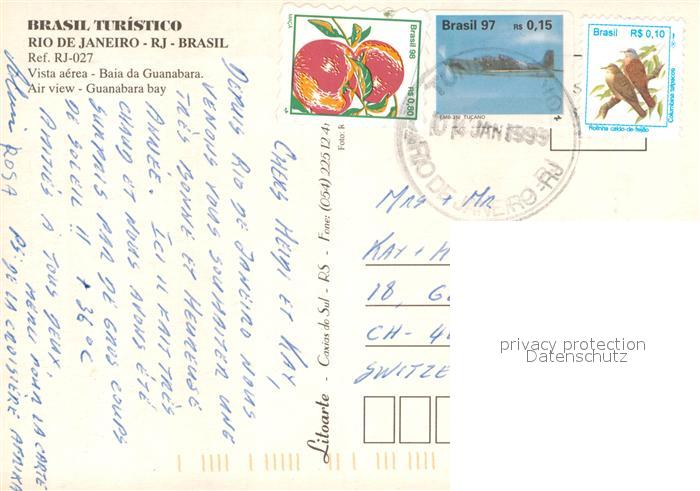 BRASIL TURÍSTICO
RIO DE JANEIRO - RJ - BRASIL
Ref. RJ-027
Vista aérea - Baia da Guanabara.
Air view - Guanabara bay
MAÇÃ
Brasil 98
R$ 0,80
Brasil 97 R$ 0,15
EMB-312 TUCANO
Brasil R$ 0,10
Columbina talpacoti
Rolinha caldo-de-feijão
14 JAN 1999
RIO DE JANEIRO - RJ
CHERS HEIDI ET KAY,
DEPUIS RIO DE JANEIRO NOUS
VENONS VOUS SOUHAITER UNE
TRÈS BONNE ET HEUREUSE
ANNÉE. ICI IL FAIT TRÈS
CHAUD ET NOUS AVONS ÉTÉ
SURPRIS PAR DE GROS COUPS
DE SOLEIL !! + 36 °C
AMITIÉS À TOUS DEUX,
MERCI POUR LA CARTE
ROSA PS DE LA CROISIÈRE AFRIKA
Litoarte - Caxias do Sul - RS - Fone: (054) 225 12 4
Foto: R
MRS + MR
KAY + H
18, G
CH - 4
SWITZE
privacy protection
Datenschutz